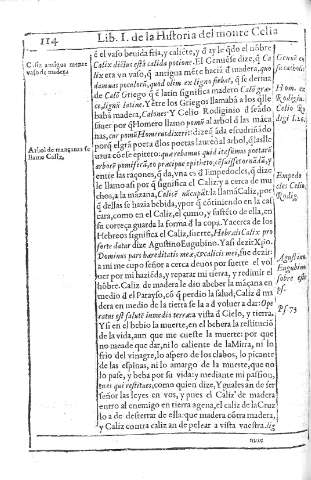 114
Lib. I. de la Historia del monte Celia
Caliz antiguamente vaso de madera
Arbol de mançanas se llamo Celia,
el vaso beuida fria, y caliēte, y q̃ ay le q̃ dō el nōbre
Calix dictus est à calida potione. El Genuēse dize, q̃ Ca
liz era vn vaso, q̃ antigua mēte haciā d̃ madera, quo
damus poculorū, quod olim ex ligno fiebat, q̃ se deriua
de Calō Griego q̃ e latin significa madero Calō græ
ce, lignū latine. Y ētre los Griegos llamabā a los q̃lle
baba madera, Calones: Y Celio Rodiginio d̃ seādo
saber por q̃ Homero llamo pomū al arbol d̃ las māca
nas, cur pomū Homerus dixerit: dize q̃ āda escudriñādo
porq̃ elgrā poeta d̃ los poetas lauteā al arbol, q̃ hasta
una cō este epiteto:
entre las raçones, q̃ da, vna es d̃ Empedocles, q̃ dize
le llamo asi por q̃ significa el Caliz; y a cerca de mu
chos, a la māzana, Calice la llamā Caliz, por
q̃ dellas se hazia bebida, ypor q̃ cōtiniendo en la cas
cara, como en el Caliz, el çumo, y sustēto de ella, en
su corteça guarda la forma d̃ la copa. Y acerca de los
Hebreos significa el Caliz, suerte, Hebræis Calix pro
sorte datur dize Agustino Eugubino. Y asi dezir Xpo.
Dominus pars hæreditatis meæ, et calicis mei, fue dezir:
a mi me cupo señor a cerca de uos por suerte el vol
uer por mi haziēda, y reparar mi tierra, y redimir el
hōbre. Caliz de madera le dio abeber la māçana en
medio d̃l Parayso, cō q̃ perdio la salud, Caliz d̃ ma
dera en medio de la tierra se la a d̃ voluer a dar: Ope
ratus est salutē in medio terræ a vista d̃ Cielo, y tierra.
Y si en el bebio la muerte, en el bebera la restitució
de la vida, aun que me cueste la muerte: por que
no meade que dar, ni lo caliente de la Mirra, ni lo
frio del vinagre, lo aspero de los clabos, lo picante
de las espinas, ni lo amargo de la muerte, que no
lo pase, y beba por su vida: y mediante mi passion,
tu es qui restitues, como quien dize, Y quales an de ser
señor las leyes en vos, y pues el Caliz de madera
entro al enemigo en tierra agena, el caliz de la Cruz
lo a de desterrar de ella: que madera cōtra madera,
y Caliz contra caliz an de pelear a vista vuestra. dig
nune
Hom. ex
Rodigin.
Celio Ro
digi l.
Empedo
cles Celio,
Rodig
Agustinus
Eugubinus
sobre este
ps.
Ps. 73